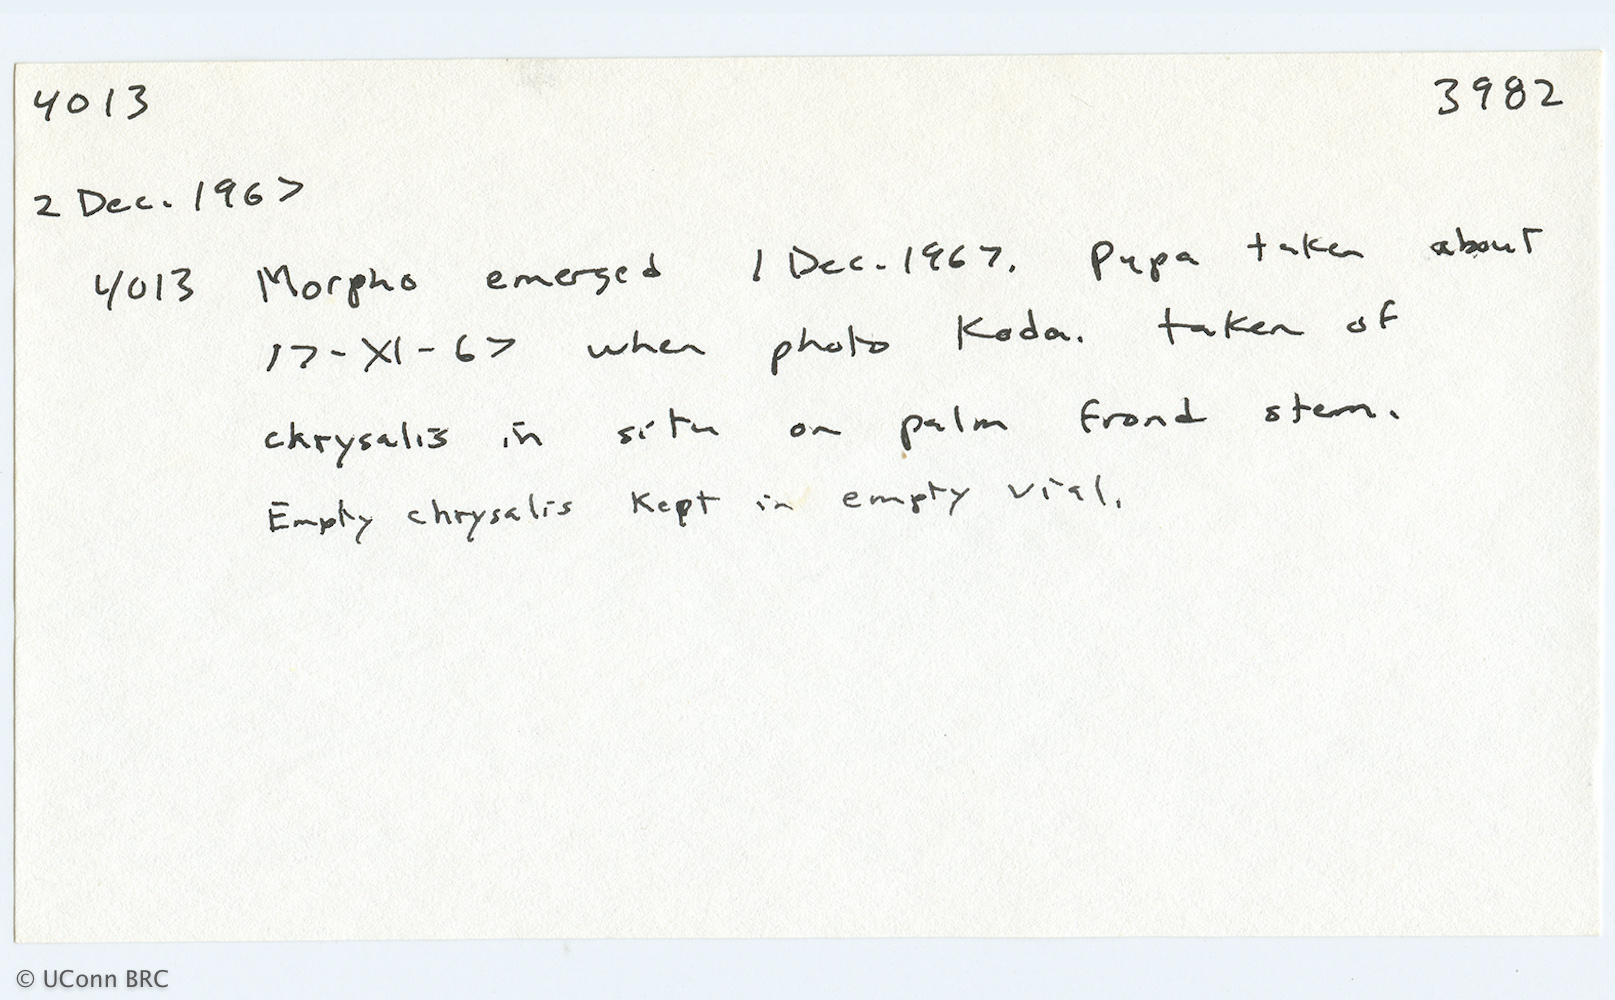 4013 3982
2 Dec. 1967
4013 Morpho emerged 1 Dec. 1967. Pupa taken about
17-XI-67 when photo Koda. taken of
chrysalis in situ on palm frond stem.
Empty chrysalis kept in empty vial.
© UConn BRC